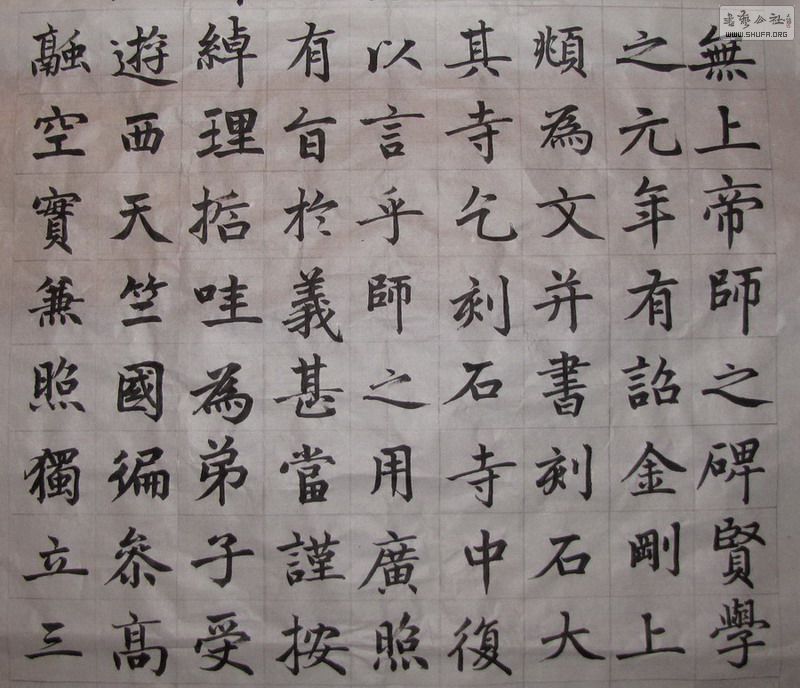 無上帝師之碑賢學
之元年有詔金剛上
頫為文并書刻石大
其寺乞刻石寺中復
以言乎師之用廣照
有旨於義甚當謹按
綽理哲哇為弟子受
遊西天竺國徧參高
融空實兼照獨立三
书艺公社
WWW.SHUFA.ORG